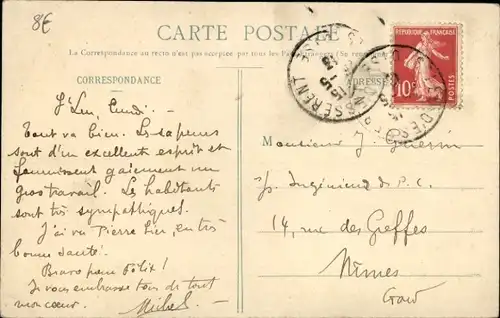 8€
CARTE POSTALE
La Correspondance au recto n'est pas acceptée par tous les Pays étrangers (Se renseigner
CORRESPONDANCE
ADRESSE
REPUBLIQUE FRANÇAISE
10c
POSTES
St Leu, Lundi.-
Tout va bien. Les sapeurs
sont d'un excellent esprit et
fournissent gaiement un
gros travail. Les habitants
sont très sympathiques.
J'ai vu Pierre hier, en très
bonne santé.
Bravo pour Félix!
Je vous embrasse tous de tout
mon coeur.
Michel
Monsieur J. Guérin
Ingénieur des P. C.
14, rue des Greffes
Nîmes
Gard